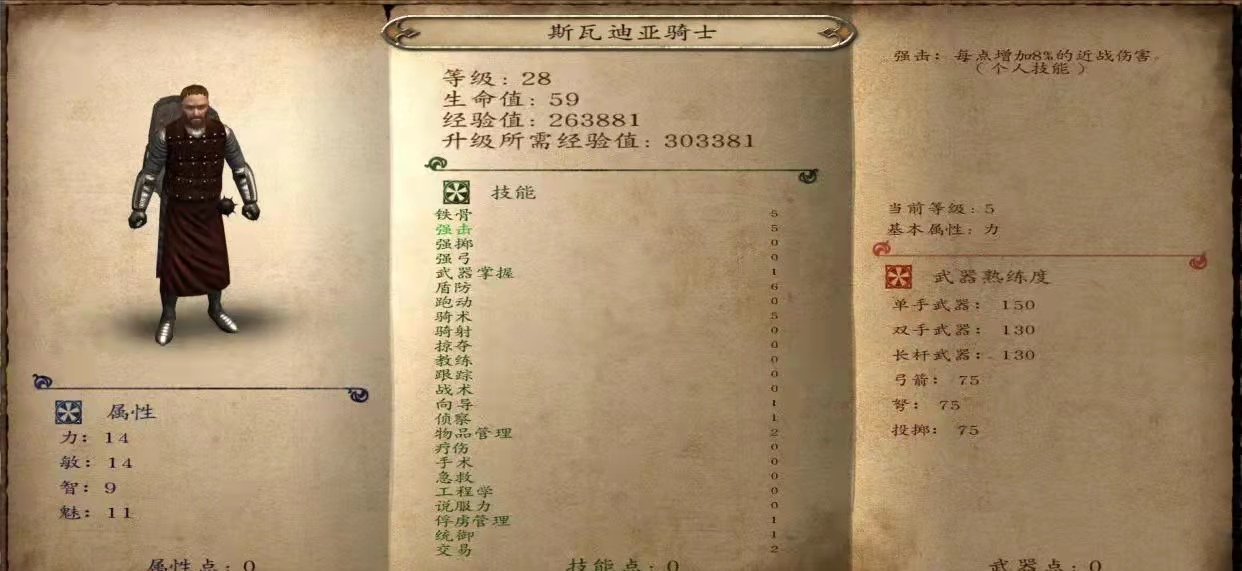 斯瓦迪亚骑士
等级: 28
生命值: 59
经验值: 263881
升级所需经验值: 303381
技能
铁骨 5
强击 5
强掷 0
强弓 0
武器掌握 1
盾防 6
跑动 0
骑术 5
骑射 0
掠夺 0
教练 0
跟踪 0
战术 0
向导 1
侦察 1
物品管理 2
疗伤 0
手术 0
急救 0
工程学 0
说服力 0
俘虏管理 1
统御 1
交易 2
技能点: 0
属性
力: 14
敏: 14
智: 9
魅: 11
属性点: 0
强击: 每点增加8%的近战伤害。
(个人技能)
当前等级: 5
基本属性: 力
武器熟练度
单手武器: 150
双手武器: 130
长杆武器: 130
弓箭: 75
弩: 75
投掷: 75
武器点: 0